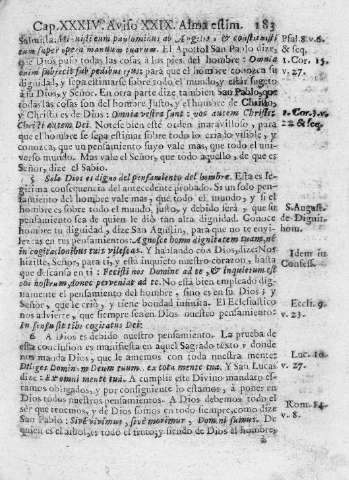 Cap. XXXIV. Aviso XXIX. Alma estim. 183
Salmista. Minuisti eum paulominus ab Angelis, & constituisti
eum super opera manuum tuarum. El Apostol San Pablo dize,
que Dios puso todas las cosas à los pies del hombre: Omnia
enim subjecit sub pedibus ejus: para que el hombre conozca su
dignidad, y sepa estimarse sobre todo el mundo, y estàr sugeto
à Dios, y Señor. En otra parte dize tambien San Pablo, que
todas las cosas son del hombre Justo, y el hombre de Christo,
y Christo es de Dios: Omnia vestra sunt: vos autem Christi:
Christi autem Dei. Notese bien este orden maravilloso, para
que el hombre se sepa estimar sobre todo lo criado visible, y
conozca, que un pensamiento suyo vale mas, que todo el uni-
verso mundo. Mas vale el Señor, que todo aquello, de que es
Señor, dize el Sabio.
5 Solo Dios es digno del pensamiento del hombre. Esta es le-
gitima consequencia del antecedente probado. Si un solo pen-
samiento del hombre vale mas, que todo el mundo, y si el
hombre es sobre todo el mundo, justo, y debido serà, que su
pensamiento sea de quien le diò tan alta dignidad. Conoce
hombre tu dignidad, dize San Agustin, para que no te envi-
lezcas en tus pensamientos: Agnosce homo dignitatem tuam, ne
in cogitationibus tuis vilescas. Y hablando con Dios, dize: Nos
hiziste, Señor, para ti, y està inquieto nuestro corazon, hasta
que descansa en ti: Fecisti nos Domine ad te, & inquietum est
cor nostrum, donec perveniat ad te. No està bien empleado dig-
namente el pensamiento del hombre, sino es en su Dios, y
Señor, que le criò, y tiene bondad infinita. El Eclesiastico
nos advierte, que siempre sea en Dios nuestro pensamiento:
In sensu sit tibi cogitatus Dei.
6 A Dios es debido nuestro pensamiento. La prueba de
esta conclusion es manifiesta en aquel Sagrado texto y donde
nos manda Dios, que le amemos con toda nuestra mente:
Diliges Dominum Deum tuum, ex tota mente tua. Y San Lucas
dize: Ex omni mente tua. A cumplir este Divino mandato es-
tamos obligados, y por consiguiente lo estamos, à poner en
Dios todos nuestros pensamientos. A Dios debemos todo el
ser que tenemos, y de Dios somos en todo tiempo, como dize
San Pablo: Sive vivimus, sive morimur, Domini sumus. De
quien es el arbol, es todo el fruto, y siendo de Dios el hombre,
Psal. 8. v. 6.
& seq.
1. Cor. 15.
v. 27.
1. Cor. 3. v.
22 & seq.
S. August.
de Dignit.
hom.
Idem in
Confess.
Eccli. 9.
v. 23.
Luc. 10.
v. 27.
Rom. 14.
v. 8.